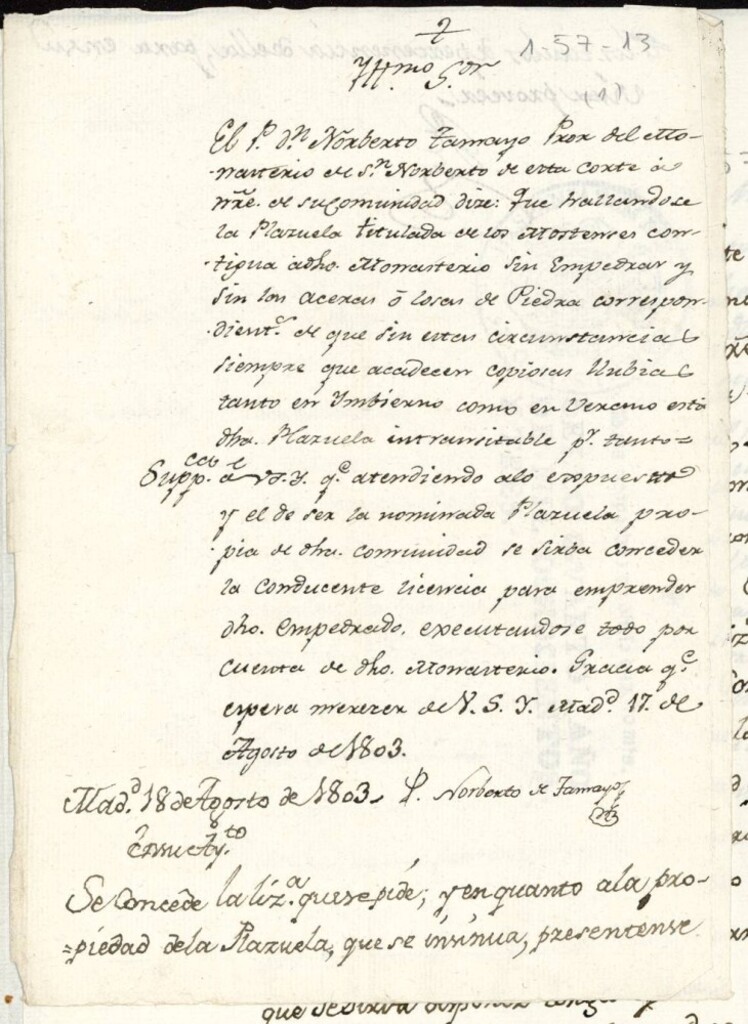 2
1-57-13
Yllmo Sor
El P. dn Norberto Tamayo Pror del Mo-
-nasterio de Sn Norberto de esta Corte a
nre. de su Comunidad dize: Que hallandose
la Plazuela titulada de los Mostenses con-
-tigua a dho. Monasterio sin Empedrar y
sin los aceras ó losas de Piedra correspon-
-dientes de que sin estas circunstancias
siempre que acadecen copiosas llubias
tanto en Ymbierno como en Verano está
dha. Plazuela intransitable pr. tanto=
Suppca a V.S.Y. qe. atendiendo alo expuesto
y el de ser la nominada Plazuela pro-
-pia de dha. comunidad se sirba conceder
la conducente licencia para emprender
dho. empedrado, executandose todo por
cuenta de dho. Monasterio. Gracia qe.
espera merecer de V. S. Y. Madd. 17. de
Agosto de 1803.
Madd. 18 de Agosto de 1803. P. Norberto de Tamayo
En su Ayto
Se concede la liza. que se pide; y en quanto a la pro-
=piedad de la Plazuela, que se insinua, presentense